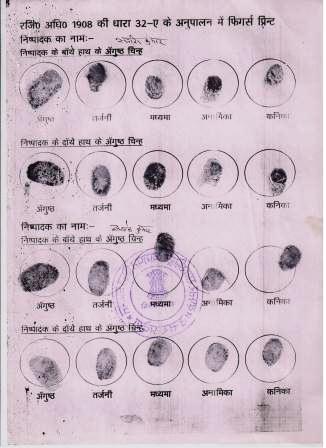 रजि0 अधि0 1908 की धारा 32-ए के अनुपालन में फिंगर्स प्रिन्ट
निष्पादक का नाम:-
निष्पादक के बाँये हाथ के अँगुष्ठ चिन्ह
अँगुष्ठ तर्जनी मध्यमा अनामिका कनिका
निष्पादक के दाँये हाथ के अँगुष्ठ चिन्ह
अँगुष्ठ तर्जनी मध्यमा अनामिका कनिका
निष्पादक का नाम:-
निष्पादक के बाँये हाथ के अँगुष्ठ चिन्ह
अँगुष्ठ तर्जनी मध्यमा अनामिका कनिका
निष्पादक के दाँये हाथ के अँगुष्ठ चिन्ह
अँगुष्ठ तर्जनी मध्यमा अनामिका कनिका